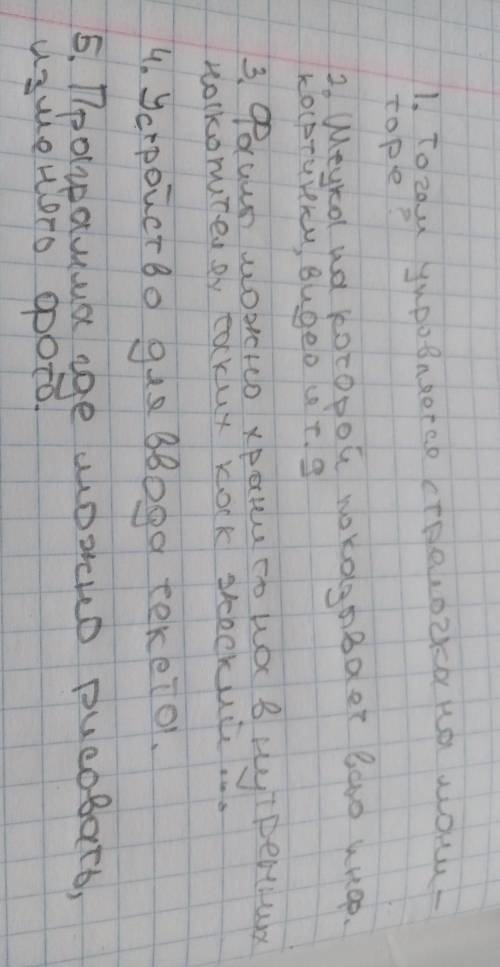 1. Тогам управляется стралочка на мони-
торе?
2. Штука на которой показывает всю инф.
картинки, видео и т.д
3. Файлы можно хранить на внутренних
накопителях таких как жоский ...
4. Устройство для ввода текста.
5. Программа где можно рисовать,
изменять фото.